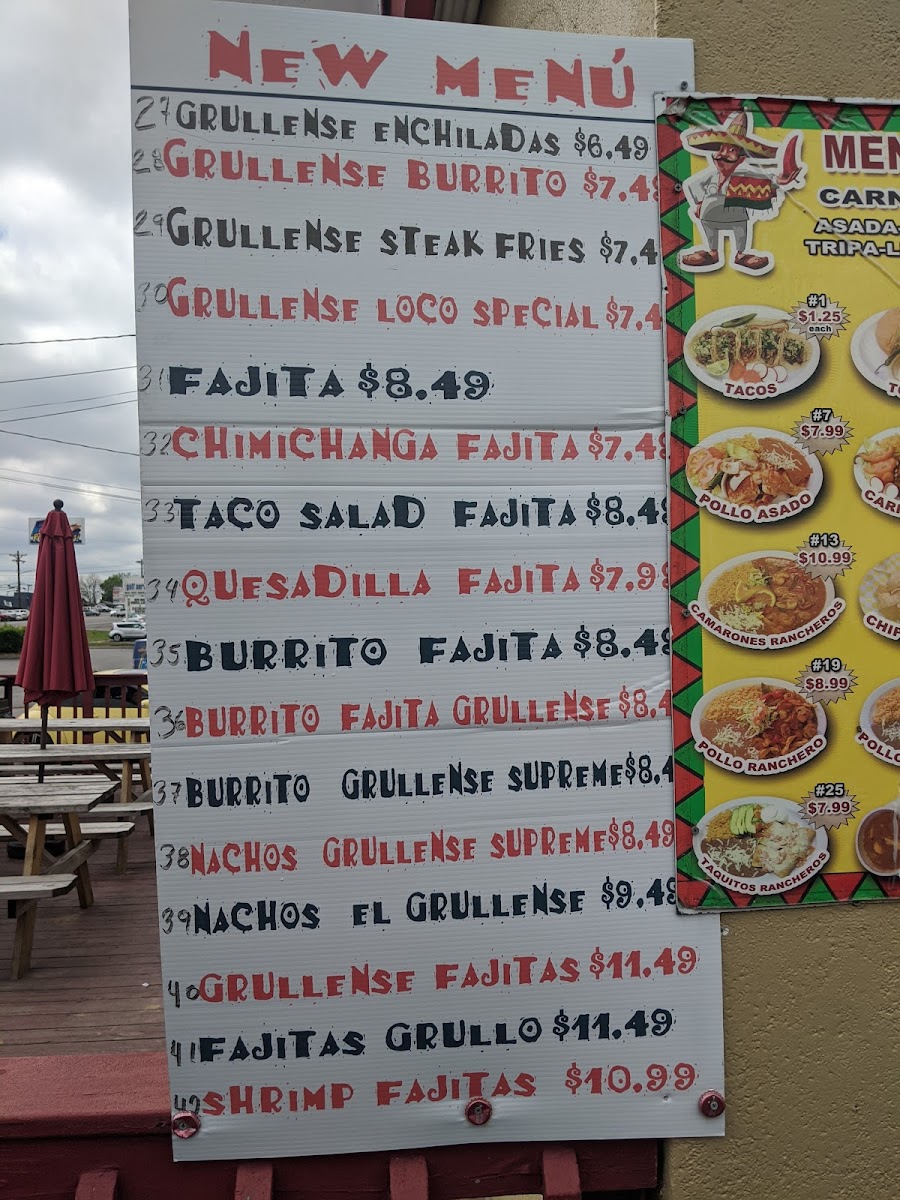 NEW MENÚ
27 GRULLENSE ENCHILADAS $6.49
28 GRULLENSE BURRITO $7.49
29 GRULLENSE STEAK FRIES $7.4
30 GRULLENSE LOCO SPECIAL $7.4
31 FAJITA $8.49
32 CHIMICHANGA FAJITA $7.49
33 TACO SALAD FAJITA $8.49
34 QUESADILLA FAJITA $7.99
35 BURRITO FAJITA $8.49
36 BURRITO FAJITA GRULLENSE $8.4
37 BURRITO GRULLENSE SUPREME $8.4
38 NACHOS GRULLENSE SUPREME $8.49
39 NACHOS EL GRULLENSE $9.49
40 GRULLENSE FAJITAS $11.49
41 FAJITAS GRULLO $11.49
42 SHRIMP FAJITAS $10.99
MEN
CARN
ASADA-
TRIPA-L
#1
$1.25
each
TACOS
TO
#7
$7.99
POLLO ASADO
CARN
#13
$10.99
CAMARONES RANCHEROS
CHIP
#19
$8.99
POLLO RANCHERO
POLLO
#25
$7.99
TAQUITOS RANCHEROS